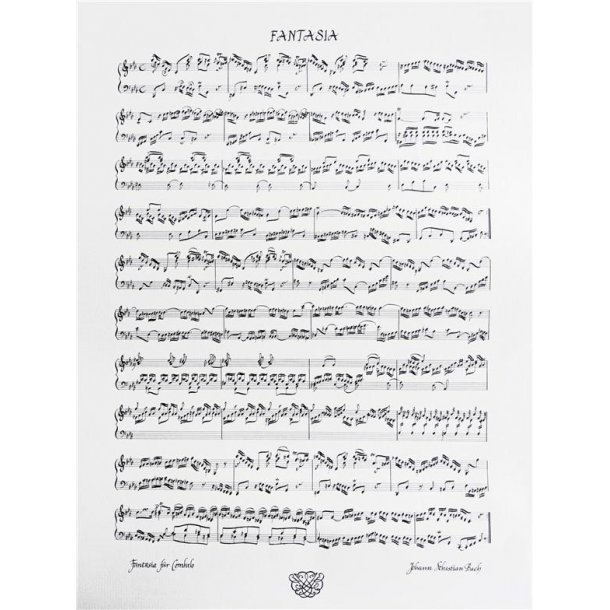 FANTASIA
Fantasia für Cembalo
Johann Sebastian Bach